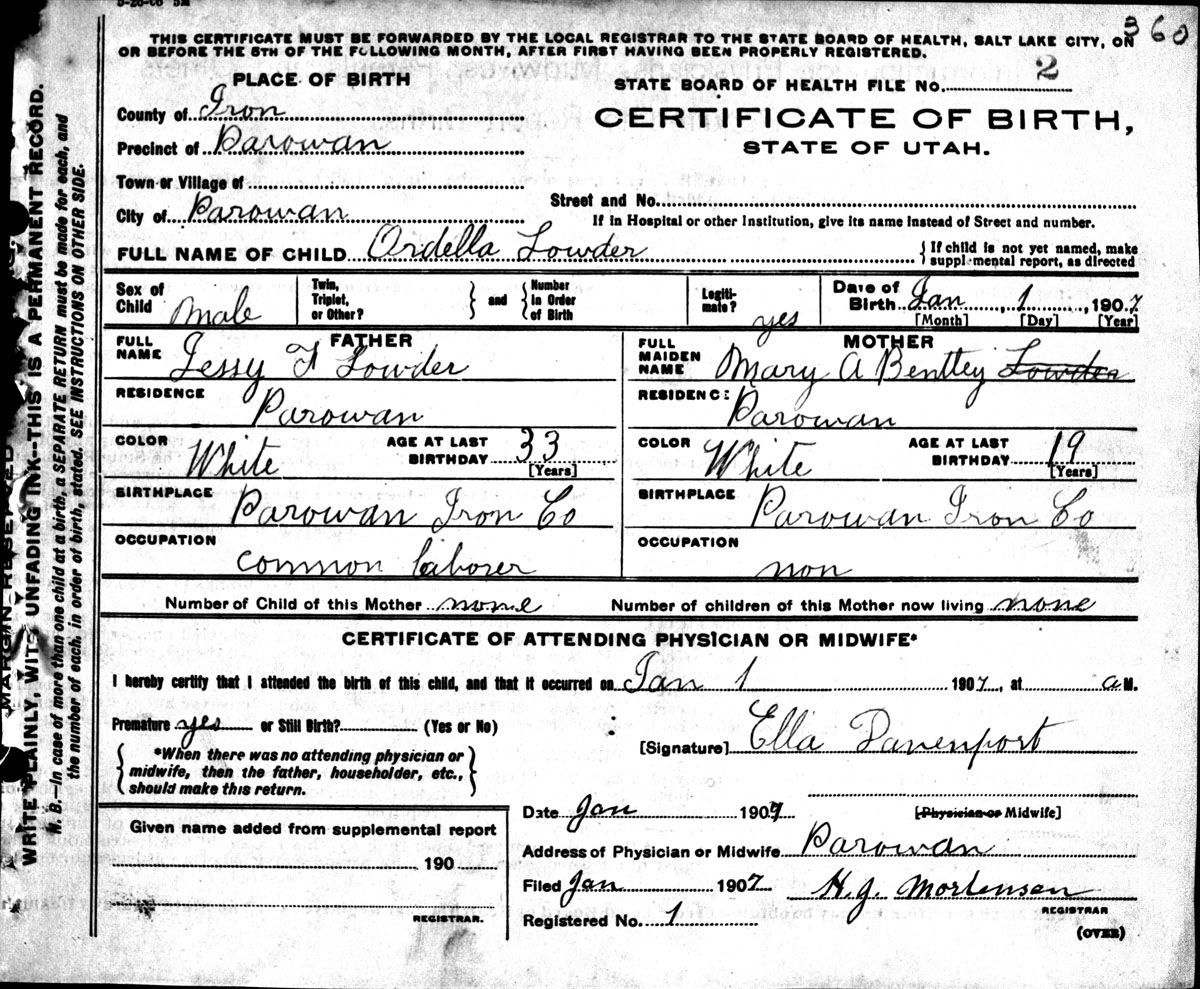 360
THIS CERTIFICATE MUST BE FORWARDED BY THE LOCAL REGISTRAR TO THE STATE BOARD OF HEALTH, SALT LAKE CITY, ON
OR BEFORE THE 5TH OF THE FOLLOWING MONTH, AFTER FIRST HAVING BEEN PROPERLY REGISTERED.
PLACE OF BIRTH
STATE BOARD OF HEALTH FILE No. 2
County of Iron
CERTIFICATE OF BIRTH,
STATE OF UTAH.
Precinct of Parowan
Town or Village of
Street and No.
City of Parowan
If in Hospital or other Institution, give its name instead of Street and number.
FULL NAME OF CHILD Ordella Lowder
{ If child is not yet named, make
supplemental report, as directed
Sex of Child Male
Twin, Triplet, or Other? } and { Number in Order of Birth
Legiti-mate? yes
Date of Birth Jan 1, 1907
[Month] [Day] [Year]
FATHER
FULL NAME Jessy F Lowder
MOTHER
FULL MAIDEN NAME Mary A Bentley Lowder
RESIDENCE Parowan
RESIDENCE Parowan
COLOR White AGE AT LAST BIRTHDAY 33 [Years]
COLOR White AGE AT LAST BIRTHDAY 19 [Years]
BIRTHPLACE Parowan Iron Co
BIRTHPLACE Parowan Iron Co
OCCUPATION common laborer
OCCUPATION non
Number of Child of this Mother none Number of children of this Mother now living none
CERTIFICATE OF ATTENDING PHYSICIAN OR MIDWIFE*
I hereby certify that I attended the birth of this child, and that it occurred on Jan 1 1907, at a M.
Premature yes or Still Birth? (Yes or No)
[Signature] Ella Davenport
{ *When there was no attending physician or
midwife, then the father, householder, etc.,
should make this return. }
Date Jan 1907 [Physician or Midwife]
Given name added from supplemental report
190
REGISTRAR.
Address of Physician or Midwife Parowan
Filed Jan 1907 H.J. Mortensen
REGISTRAR
Registered No. 1
(OVER)
MARGIN RESERVED
WRITE PLAINLY, WITH UNFADING INK--THIS IS A PERMANENT RECORD.
N. B.--In case of more than one child at a birth, a SEPARATE RETURN must be made for each, and
the number of each, in order of birth, stated. SEE INSTRUCTIONS ON OTHER SIDE.